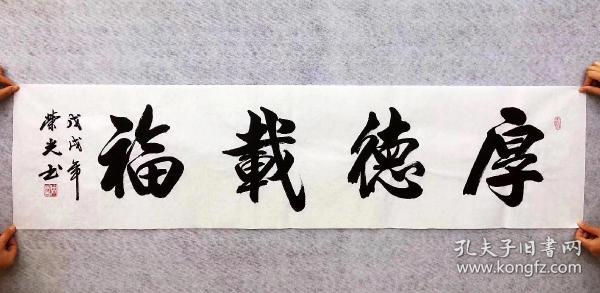 厚德載福
戊戌年
荣光书
孔夫子旧书网
www.kongfz.com